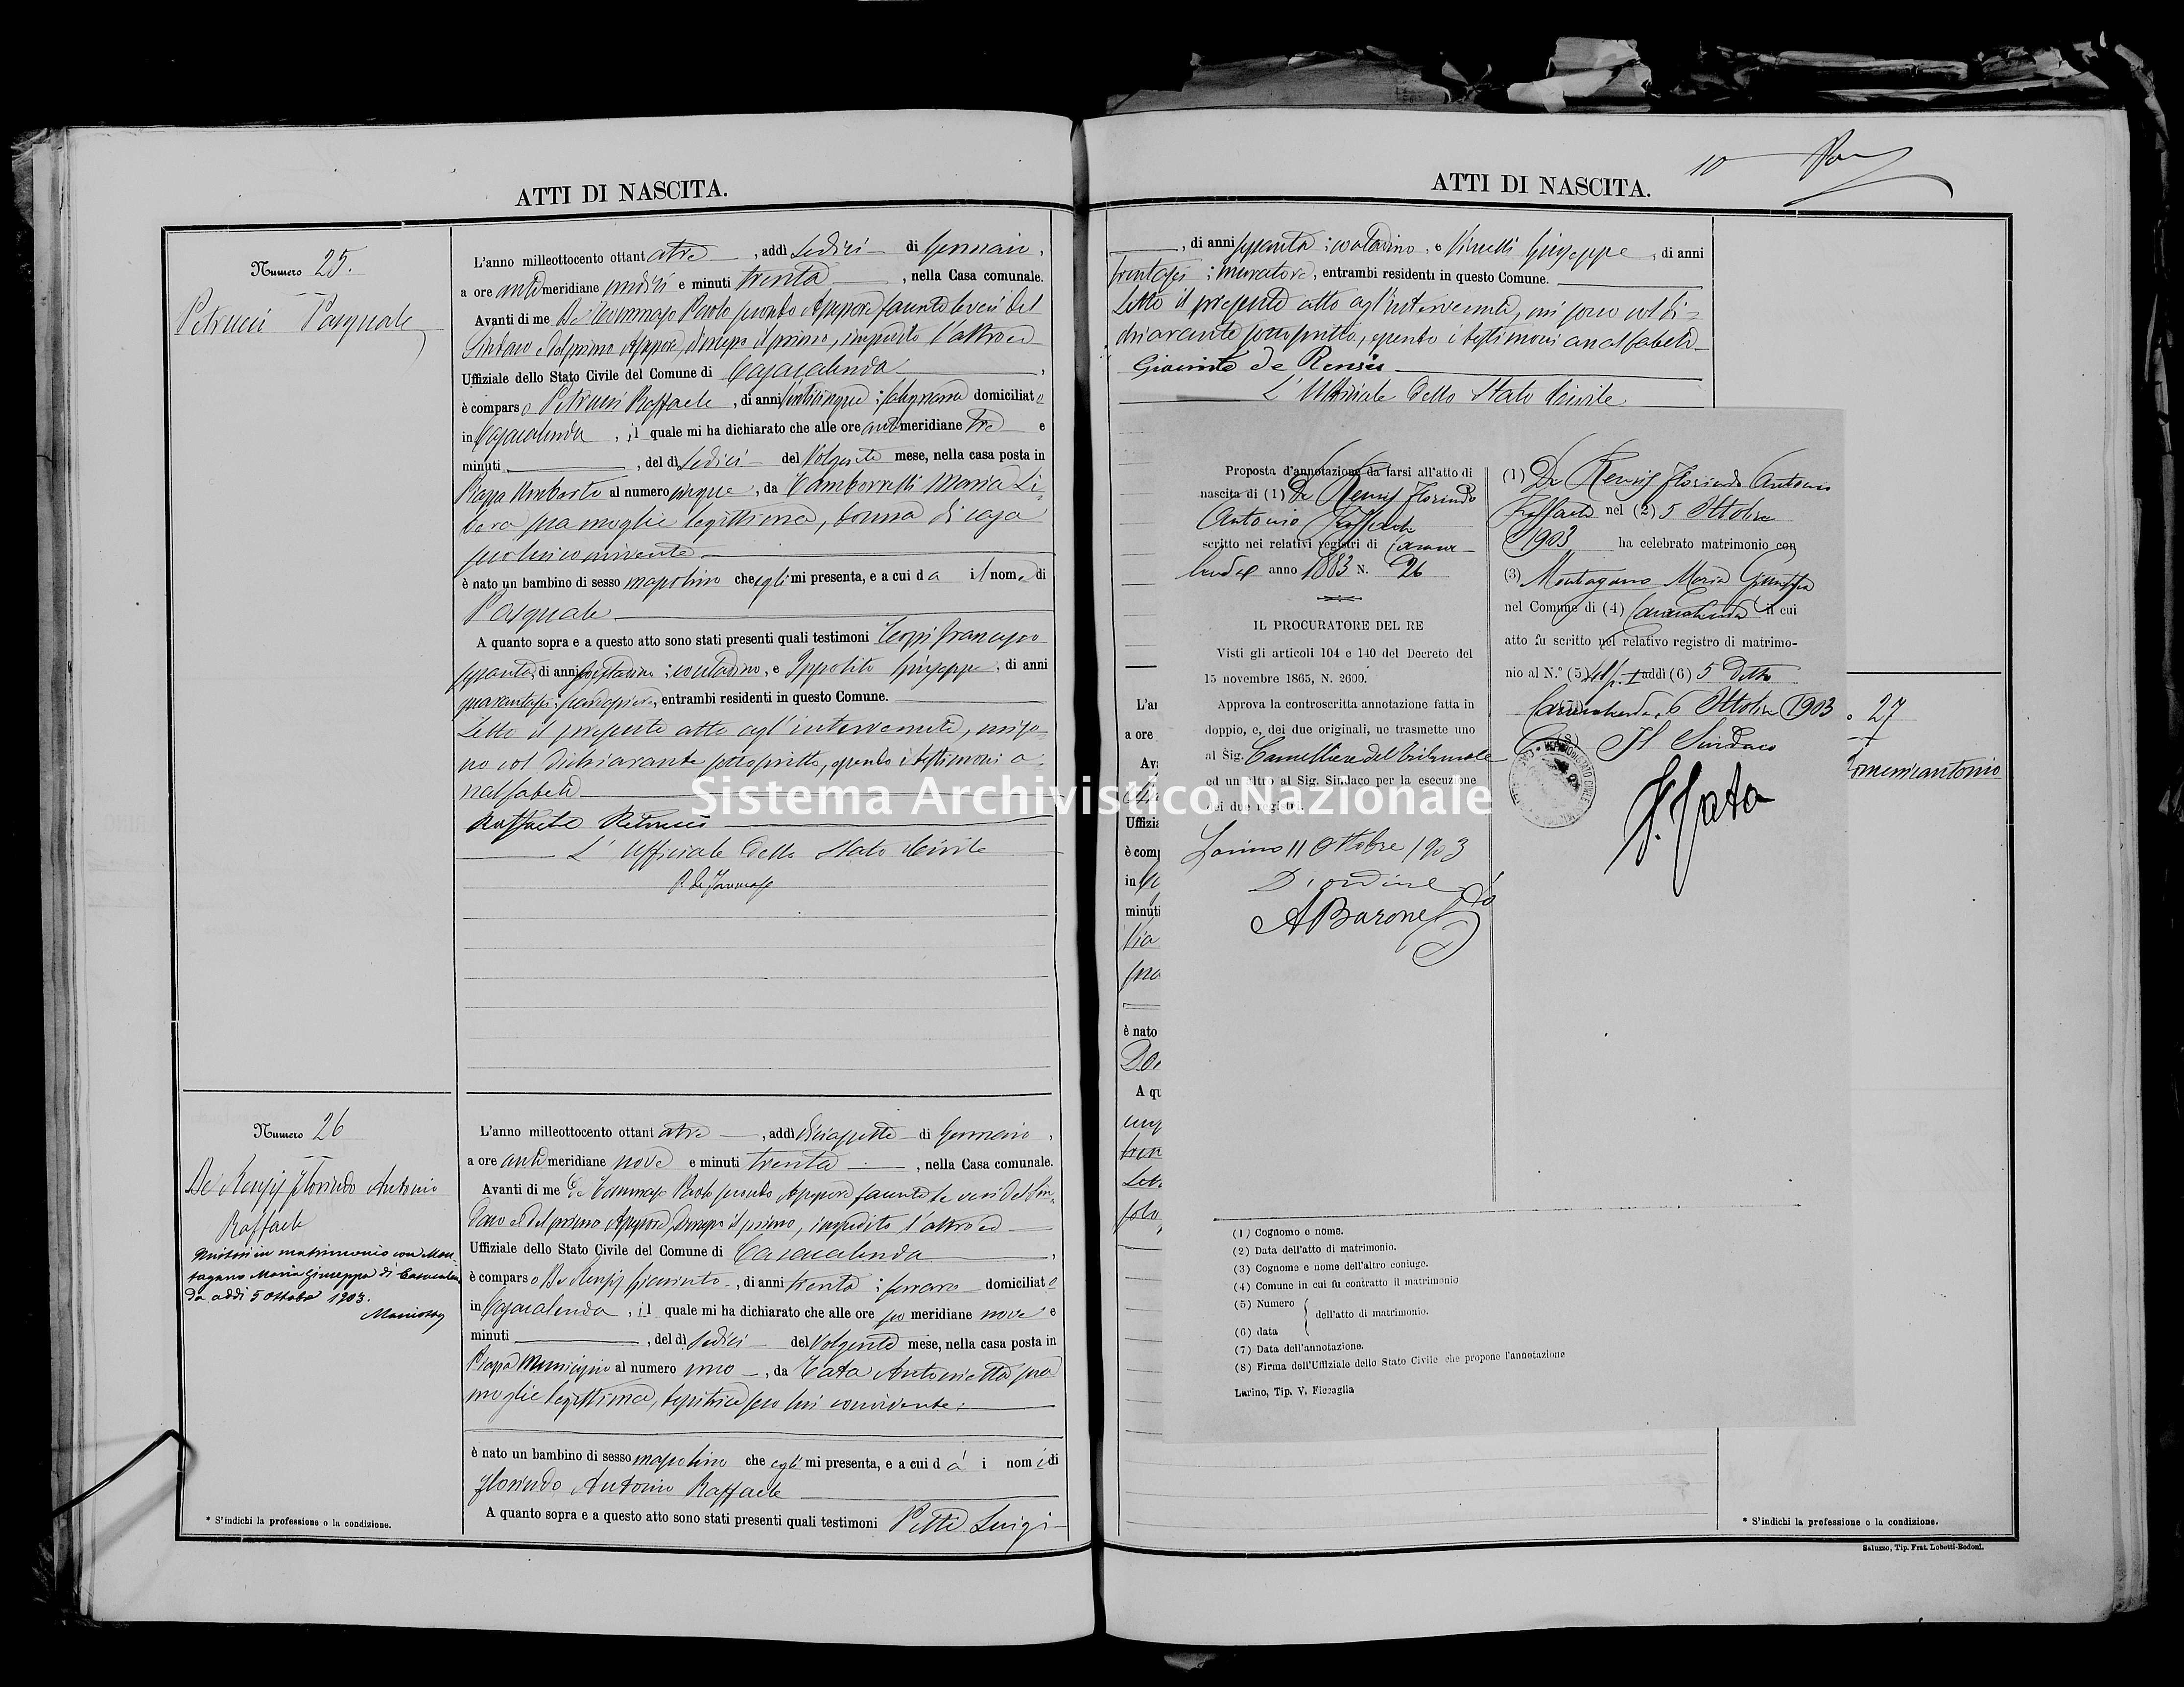 ATTI DI NASCITA.
Numero 25.
Petrucci Pasquale
L'anno milleottocento ottantatre, addì sedici di Gennaio,
a ore antimeridiane undici e minuti trenta, nella Casa comunale.
Avanti di me De Tommaso Paolo secondo Assessore facente le veci del
Sindaco e del primo Assessore, dispensato il primo, impedito l'altro ed
Uffiziale dello Stato Civile del Comune di Casacalenda,
è comparso Petrucci Raffaele, di anni venticinque; falegname domiciliato
in Casacalenda, il quale mi ha dichiarato che alle ore antimeridiane tre e
minuti, del dì sedici del volgente mese, nella casa posta in
Piazza Umberto al numero cinque, da Tamborrelli Maria Li-
bera sua moglie legittima, donna di casa
seco lui convivente
è nato un bambino di sesso mascolino che egli mi presenta, e a cui dà il nome di
Pasquale
A quanto sopra e a questo atto sono stati presenti quali testimoni Francesco
di anni contadino, e Ippolito Giuseppe, di anni
quarantasei, entrambi residenti in questo Comune.
Letto il presente atto agl'intervenuti, mi so-
no col dichiarante sottoscritto, essendo i testimoni a-
nalfabeti
Raffaele Petrucci
L'Uffiziale dello Stato Civile
P. de Tommaso
Numero 26
De Rensis Florindo Antonio
Raffaele
Unitosi in matrimonio con Mon-
tagano Maria Giuseppa di Casacalen
da addì 5 ottobre 1903.
L'anno milleottocento ottantatre, addì diciassette di Gennaio,
a ore antimeridiane nove e minuti trenta, nella Casa comunale.
Avanti di me De Tommaso Paolo secondo Assessore facente le veci del Sin-
daco e del primo Assessore, dispensato il primo, impedito l'altro ed
Uffiziale dello Stato Civile del Comune di Casacalenda,
è comparso De Rensis Giacinto, di anni trenta; ferraro domiciliato
in Casacalenda, il quale mi ha dichiarato che alle ore pomeridiane nove e
minuti, del dì sedici del volgente mese, nella casa posta in
Piazza Municipio al numero uno, da Tata Antonietta sua
moglie legittima, tessitrice seco lui convivente;
è nato un bambino di sesso mascolino che egli mi presenta, e a cui dà i nomi di
Florindo Antonio Raffaele
A quanto sopra e a questo atto sono stati presenti quali testimoni Petti Luigi
* S'indichi la professione o la condizione.
ATTI DI NASCITA.
10
, di anni sessanta; contadino, e Vincelli Giuseppe, di anni
trentasei; muratore, entrambi residenti in questo Comune.
Letto il presente atto agl'intervenuti, mi sono col di-
chiarante sottoscritto, essendo i testimoni analfabeti
Giacinto de Rensis
L'Uffiziale dello Stato Civile
Proposta d'annotazione da farsi all'atto di
nascita di (1) De Rensis Florindo
Antonio Raffaele
scritto nei relativi registri di Casaca-
lenda anno 1883 N. 26
IL PROCURATORE DEL RE
Visti gli articoli 104 e 140 del Decreto del
15 novembre 1865, N. 2600.
Approva la controscritta annotazione fatta in
doppio, e, dei due originali, ne trasmette uno
al Sig. Cancelliere del Tribunale
ed un altro al Sig. Sindaco per la esecuzione
dei due registri.
Larino 11 Ottobre 1903
D'ordine
A Barone
(1) De Rensis Florindo Antonio
Raffaele nel (2) 5 Ottobre
1903 ha celebrato matrimonio con
(3) Montagano Maria Giuseppa
nel Comune di (4) Casacalenda il cui
atto fu scritto nel relativo registro di matrimo-
nio al N.° (5) 41 p. I addì (6) 5 detto
Casacalenda, 6 Ottobre 1903
(8) Il Sindaco
F. Tata
(1) Cognome e nome.
(2) Data dell'atto di matrimonio.
(3) Cognome e nome dell'altro coniuge.
(4) Comune in cui fu contratto il matrimonio
(5) Numero
dell'atto di matrimonio.
(6) data
(7) Data dell'annotazione.
(8) Firma dell'Uffiziale dello Stato Civile che propone l'annotazione
Larino, Tip. V. Ficcaglia
L'a
a ore
Av
Uffizia
è comp
in
minuti
Via
è nato
A qu
27
omenicantonio
* S'indichi la professione o la condizione.
Saluzzo, Tip. Frat. Lobetti-Bodoni.
Sistema Archivistico Nazionale